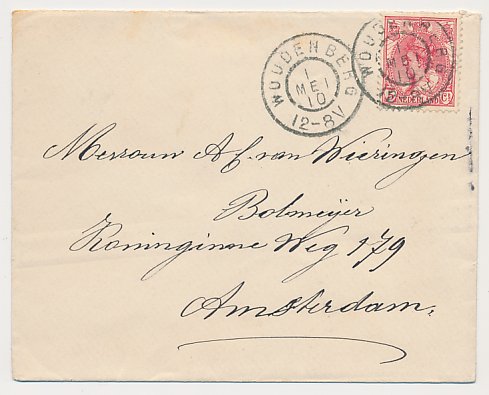 WOUDENBERG
1
MEI
10
12-8V
WOUDENBERG
1
MEI
10
NEDERLAND
Mevrouw A.f. van Wieringen
Bolmeijer
Koninginne Weg 179
Amsterdam.